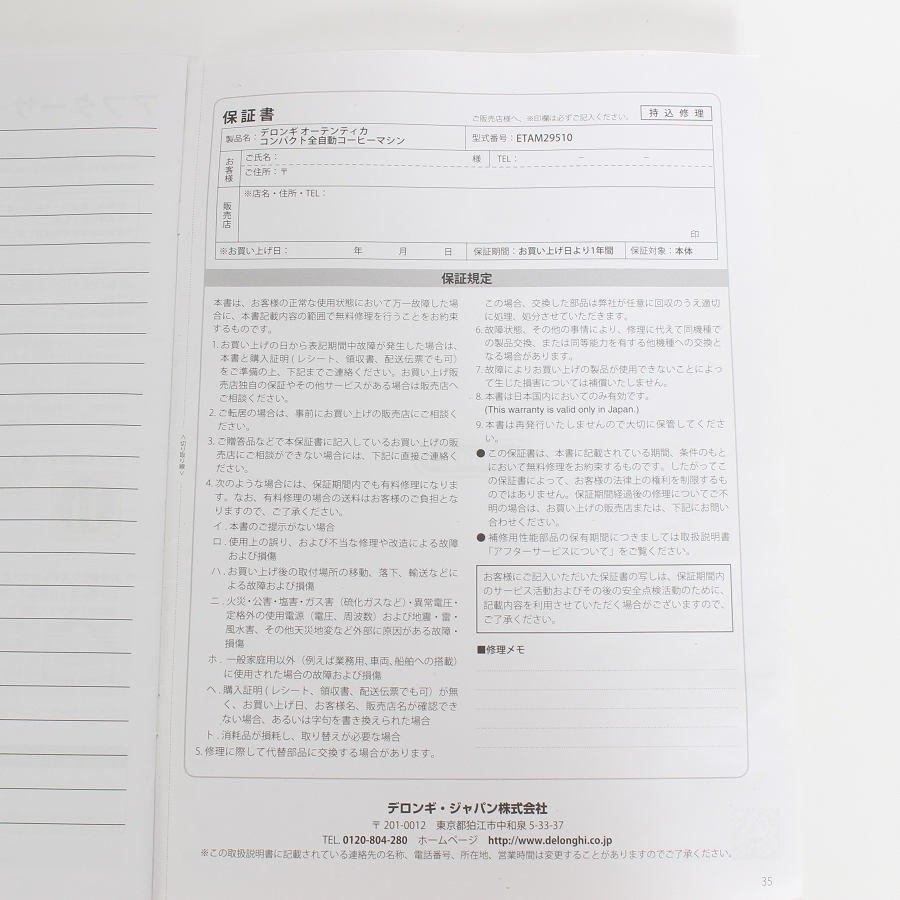 アフターサ
保証書
ご販売店様へ、※印欄は必ずご記入ください。
持込修理
製品名： デロンギ オーテンティカ
コンパクト全自動コーヒーマシン
型式番号： ETAM29510
お客様
ご氏名：
様
TEL： － －
ご住所：〒
販売店
※店名・住所・TEL：
印
※お買い上げ日： 年 月 日
保証期間：お買い上げ日より1年間
保証対象：本体
保証規定
本書は、お客様の正常な使用状態において万一故障した場
合に、本書記載内容の範囲で無料修理を行うことをお約束
するものです。
1. お買い上げの日から表記期間中故障が発生した場合は、
本書と購入証明(レシート、領収書、配送伝票でも可)
をご準備の上、下記までご連絡ください。お買い上げ販
売店独自の保証やその他サービスがある場合は販売店へ
ご相談ください。
2. ご転居の場合は、事前にお買い上げの販売店にご相談く
ださい。
3. ご贈答品などで本保証書に記入しているお買い上げの販
売店にご相談ができない場合には、下記に直接ご連絡く
ださい。
4. 次のような場合には、保証期間内でも有料修理になりま
す。なお、有料修理の場合の送料はお客様のご負担とな
りますので、ご了承ください。
イ．本書のご提示がない場合
ロ．使用上の誤り、および不当な修理や改造による故障
および損傷
ハ．お買い上げ後の取付場所の移動、落下、輸送などに
よる故障および損傷
ニ．火災・公害・塩害・ガス害（硫化ガスなど）・異常電圧・
定格外の使用電源（電圧、周波数）および地震・雷・
風水害、その他天災地変など外部に原因がある故障・
損傷
ホ．一般家庭用以外（例えば業務用、車両、船舶への搭載）
に使用された場合の故障および損傷
ヘ．購入証明(レシート、領収書、配送伝票でも可）が無
く、お買い上げ日、お客様名、販売店名が確認でき
ない場合、あるいは字句を書き換えられた場合
ト．消耗品が損耗し、取り替えが必要な場合
5. 修理に際して代替部品に交換する場合があります。
この場合、交換した部品は弊社が任意に回収のうえ適切
に処理、処分させていただきます。
6. 故障状態、その他の事情により、修理に代えて同機種で
の製品交換、または同等能力を有する他機種への交換と
なる場合があります。
7. 故障によりお買い上げの製品が使用できないことによっ
て生じた損害については補償いたしません。
8. 本書は日本国内においてのみ有効です。
(This warranty is valid only in Japan.)
9. 本書は再発行いたしませんので大切に保管してくださ
い。
● この保証書は、本書に記載されている期間、条件のもと
において無料修理をお約束するものです。したがってこ
の保証書によって、お客様の法律上の権利を制限するも
のではありません。保証期間経過後の修理についてご不
明の場合は、お買い上げの販売店または、下記にお問い
合わせください。
● 補修用性能部品の保有期間につきましては取扱説明書
「アフターサービスについて」をご覧ください。
お客様にご記入いただいた保証書の写しは、保証期間内
のサービス活動およびその後の安全点検活動のために、
記載内容を利用させていただく場合がございますので、
ご了承ください。
■修理メモ
＜切り取り線＞
デロンギ・ジャパン株式会社
〒201-0012 東京都狛江市中和泉 5-33-37
TEL. 0120-804-280 ホームページ http://www.delonghi.co.jp
※この取扱説明書に記載されている連絡先の名称、電話番号、所在地、営業時間は変更することがありますのでご了承ください。
35